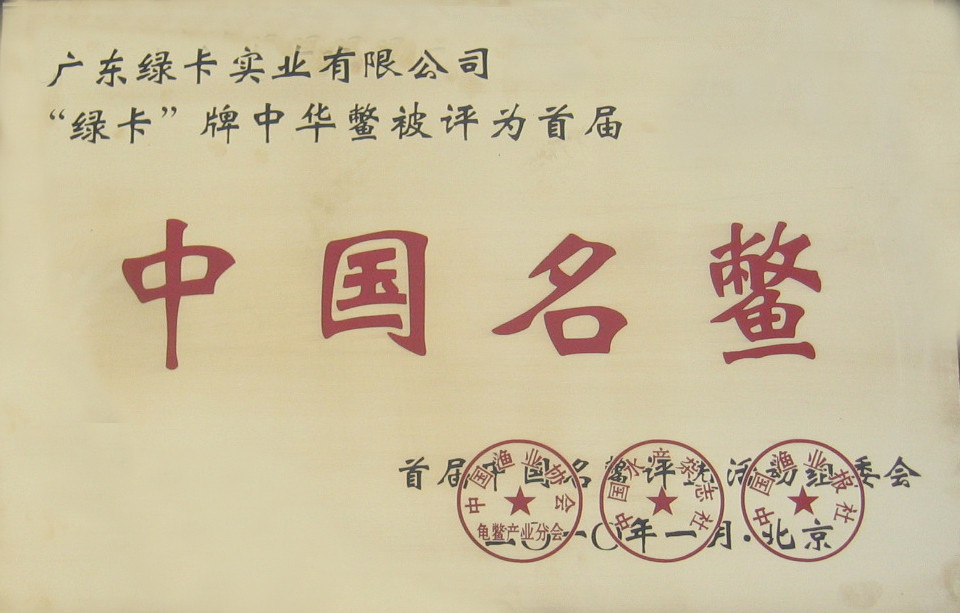 广东绿卡实业有限公司
“绿卡”牌中华鳖被评为首届
中国名鳖
首届中国名鳖评选活动组委会
二〇一〇年一月·北京
中国渔业协会
龟鳖产业分会
中国水产杂志社
中国渔业报社